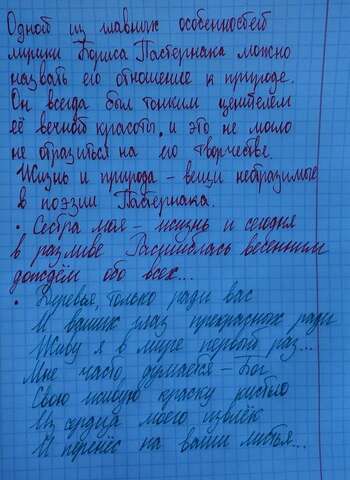 Одной из главных особенностей
лирики Бориса Пастернака можно
назвать его отношение к природе.
Он всегда был тонким ценителем
её вечной красоты, и это не могло
не отразиться на его творчестве.
Жизнь и природа - вещи неотразимые
в поэзии Пастернака.
• Сестра моя - жизнь и сегодня
в разливе Расшиблась весенним
дождём обо всех...
• Деревья, только ради вас
И ваших глаз прекрасных ради
Живу я в мире первый раз...
Мне часто думается - Бог
Свою живую краску кистью
Из сердца моего извлёк
И перенёс на ваши листья...